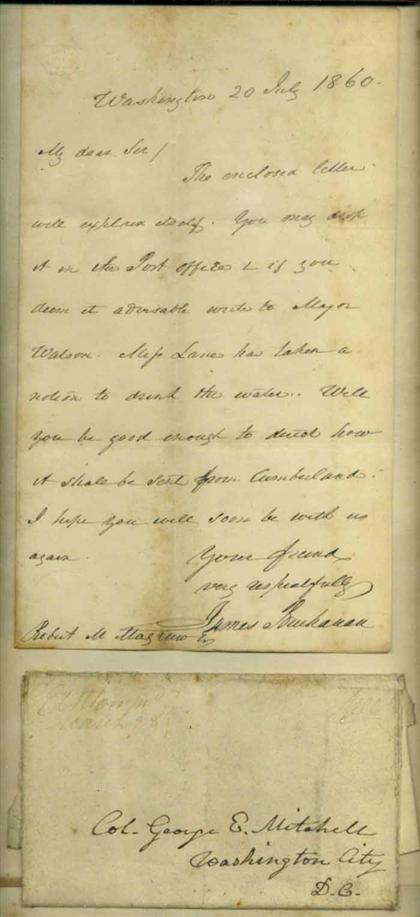 Washington 20 July 1860.
My dear Sir/
The enclosed letter
will explain itself. You may drop
it in the Post office & if you
deem it advisable write to Major
Watson. Miss Lane has taken a
notion to drink the water. Will
you be good enough to direct how
it shall be sent from Cumberland.
I hope you will soon be with us
again.
Your friend
very respectfully
James Buchanan
Robert M. Magraw Esq
March 28
Col. George E. Mitchell
Washington City
D.C.